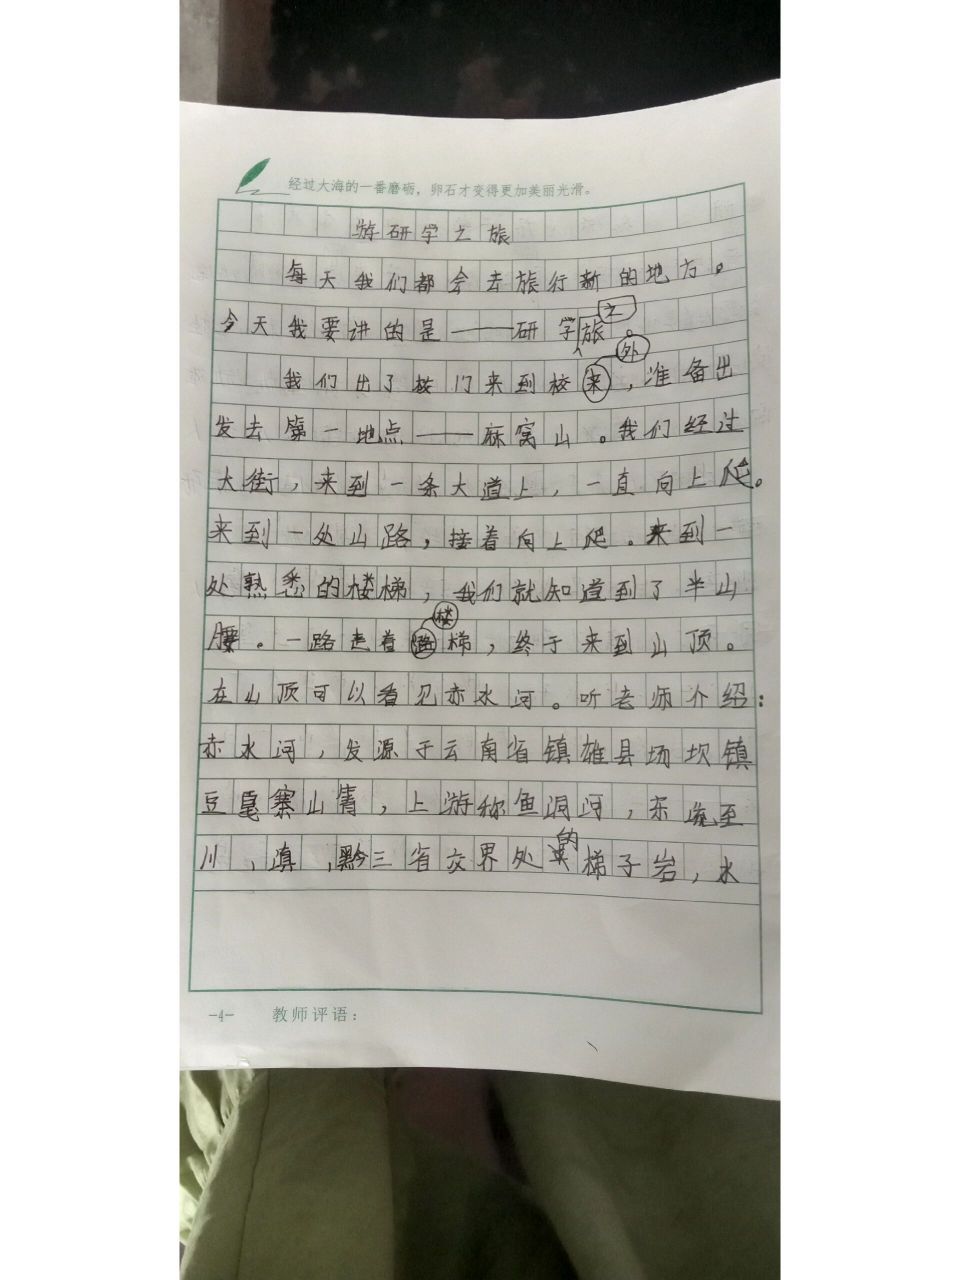 经过大海的一番磨砺，卵石才变得更加美丽光滑。
游研学之旅
每天我们都会去旅行新的地方。
今天我要讲的是——研学之旅。
我们出了校门来到校外，准备出
发去第一地点——麻窝山。我们经过
大街，来到一条大道上，一直向上爬。
来到一处山路，接着向上爬。来到一
处熟悉的楼梯，我们就知道到了半山
腰。一路走着楼梯，终于来到山顶。
在山顶可以看见赤水河。听老师介绍：
赤水河，发源于云南省镇雄县场坝镇
豆戛寨山箐，上游称鱼洞河，东流至
川，滇，黔三省交界处的梯子岩，水
-4- 教师评语：